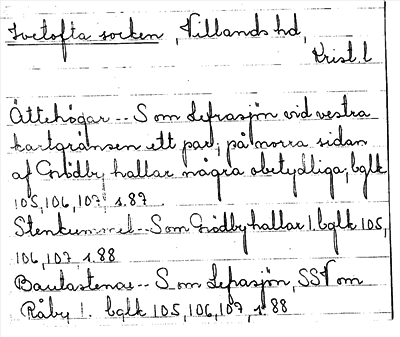 Ivetofta socken, Villands hd,
Krist. l
Ättehögar -- S om Lefrasjön vid vestra
kartgränsen ett par; på norra sidan
af Grödby hallar några obetydliga; bglk
105, 106, 107, s. 87
Stenkummel -- S om Grödby hallar 1. bglk 105,
106, 107 s. 88
Bautastenar -- S om Lefrasjön, SSV om
Råby 1. bglk 105, 106, 107, s. 88